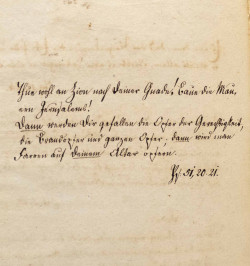 Thue wohl an Zion nach Deiner Gnade! Baue die Mau,
ern Jerusalems!
Dann werden Dir gefallen die Opfer der Gerechtigkeit,
die Brandopfer und ganzen Opfer, dann wird man
Farren auf Deinem Altar opfern.
Ps. 51, 20. 21.